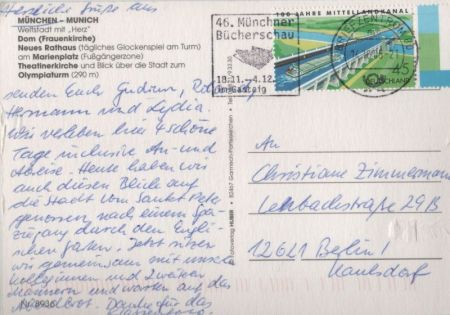 Herzliche Grüße aus
MÜNCHEN - MUNICH
Weltstadt mit „Herz"
Dom (Frauenkirche)
Neues Rathaus (tägliches Glockenspiel am Turm)
am Marienplatz (Fußgängerzone)
Theatinerkirche und Blick über die Stadt zum
Olympiaturm (290 m)
senden Euch Gudrun,
Hermann und Lydia.
Wir verleben hier 4 schöne
Tage inclusive An- und
Abreise. Heute haben wir
auch diesen Blick auf
die Stadt vom Sankt Peter
genossen, nach einem Spa-
ziergang durch den Engli-
schen Garten. Jetzt sitzen
wir gemeinsam mit unseren
Kolleginnen und 2 weiteren
Männern und warten auf das
Danke für das
Nr. 8936
46. Münchner
Bücherschau
18.11.-4.12.
im Gasteig
100 JAHRE MITTELLANDKANAL
BRIEFZENTRUM
45
DEUTSCHLAND
© Fotoverlag HUBER · 82467 Garmisch-Partenkirchen
An
Christiane Zimmermann
Lehrbachstraße 29B
12621 Berlin/
Kaulsdorf